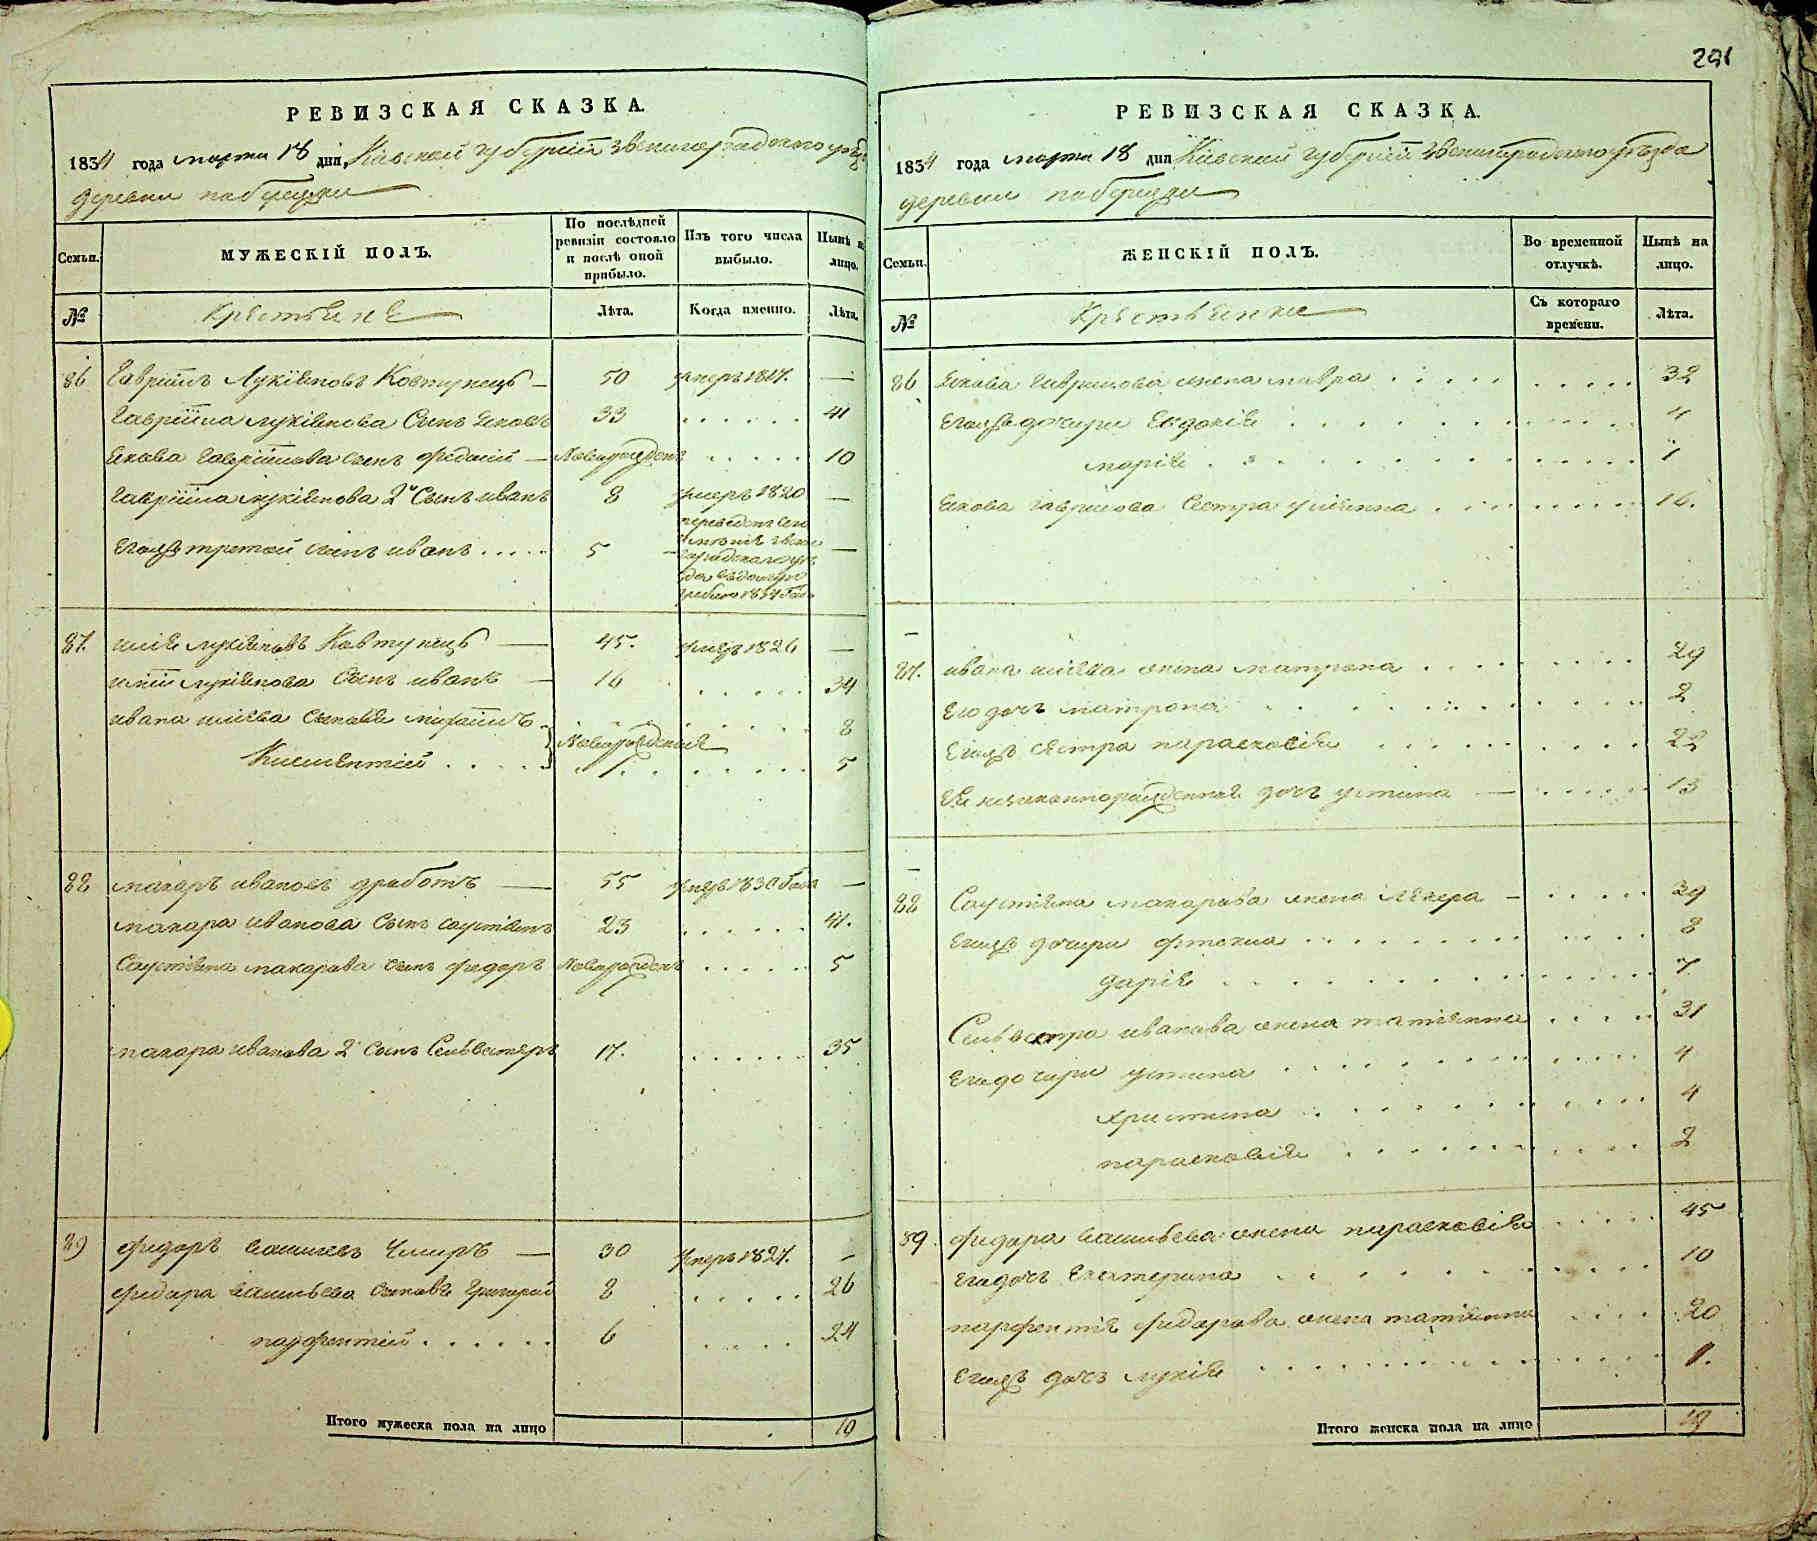 291
РЕВИЗСКАЯ СКАЗКА.
1834 года марта 18 дня, Кіевской губерніи Звенигородского
деревни
Семьи.
МУЖЕСКІЙ ПОЛЪ.
По послѣдней ревизіи состояло и послѣ оной прибыло.
Изъ того числа выбыло.
Нынѣ на лицо.
№
Крестьяне
Лѣта.
Когда именно.
Лѣта.
86 Гавріилъ Лукіяновъ Ковтунецъ — 50 умеръ 1817. —
Гавріила Лукіянова Сынъ Яковъ 33 41
Якова Гавріилова сынъ — Новорожденъ 10
Гавріила Лукіянова 2й Сынъ иванъ 8 умеръ 1820 —
Егожъ третей сынъ иванъ 5 —
1834
87. илія Лукіяновъ Ковтунецъ — 45. умеръ 1826 —
иліи Лукіянова Сынъ иванъ — 16 34
ивана иліева сыновья михаилъ 8
Новорожденные
5
88 макаръ ивановъ — 55 умеръ 1830 года —
макара иванова Сынъ 23 41.
макарова сынъ федоръ Новорожденъ 5
макара иванова 2й сынъ 17. 35
89 федоръ — 30 умеръ 1827. —
федора васильева сыновья Григорій 8 26
парфентій 6 24
Итого мужеска пола на лицо 10
РЕВИЗСКАЯ СКАЗКА.
1834 года марта 18 дня Кіевской губерніи Звенигородского уѣзда
деревни
Семьи.
ЖЕНСКІЙ ПОЛЪ.
Во временной отлучкѣ.
Нынѣ на лицо.
№
Крестьянки
Съ котораго времени.
Лѣта.
86 Якова Гаврилова жена мавра 32
Егожъ дочери Евдокія 4
марія 1
Якова Гаврилова Сестра улиянна 16.
87. ивана иліева жена матрона 29
Его дочь матрона 2
Егожъ сестра параскевія 22
Ея незаконнорожденная дочь устина — 13
88 макарова жена — 39
Егожъ дочери 8
дарія 7
иванова жена татіянна 31
Его дочери устина 4
христина 4
параскевія 2
89. федора васильева жена параскевія 45
Его дочь Екатерина 10
парфентія федорова жена татіянна 20
Егожъ дочь лукія 1.
Итого женска пола на лицо 19